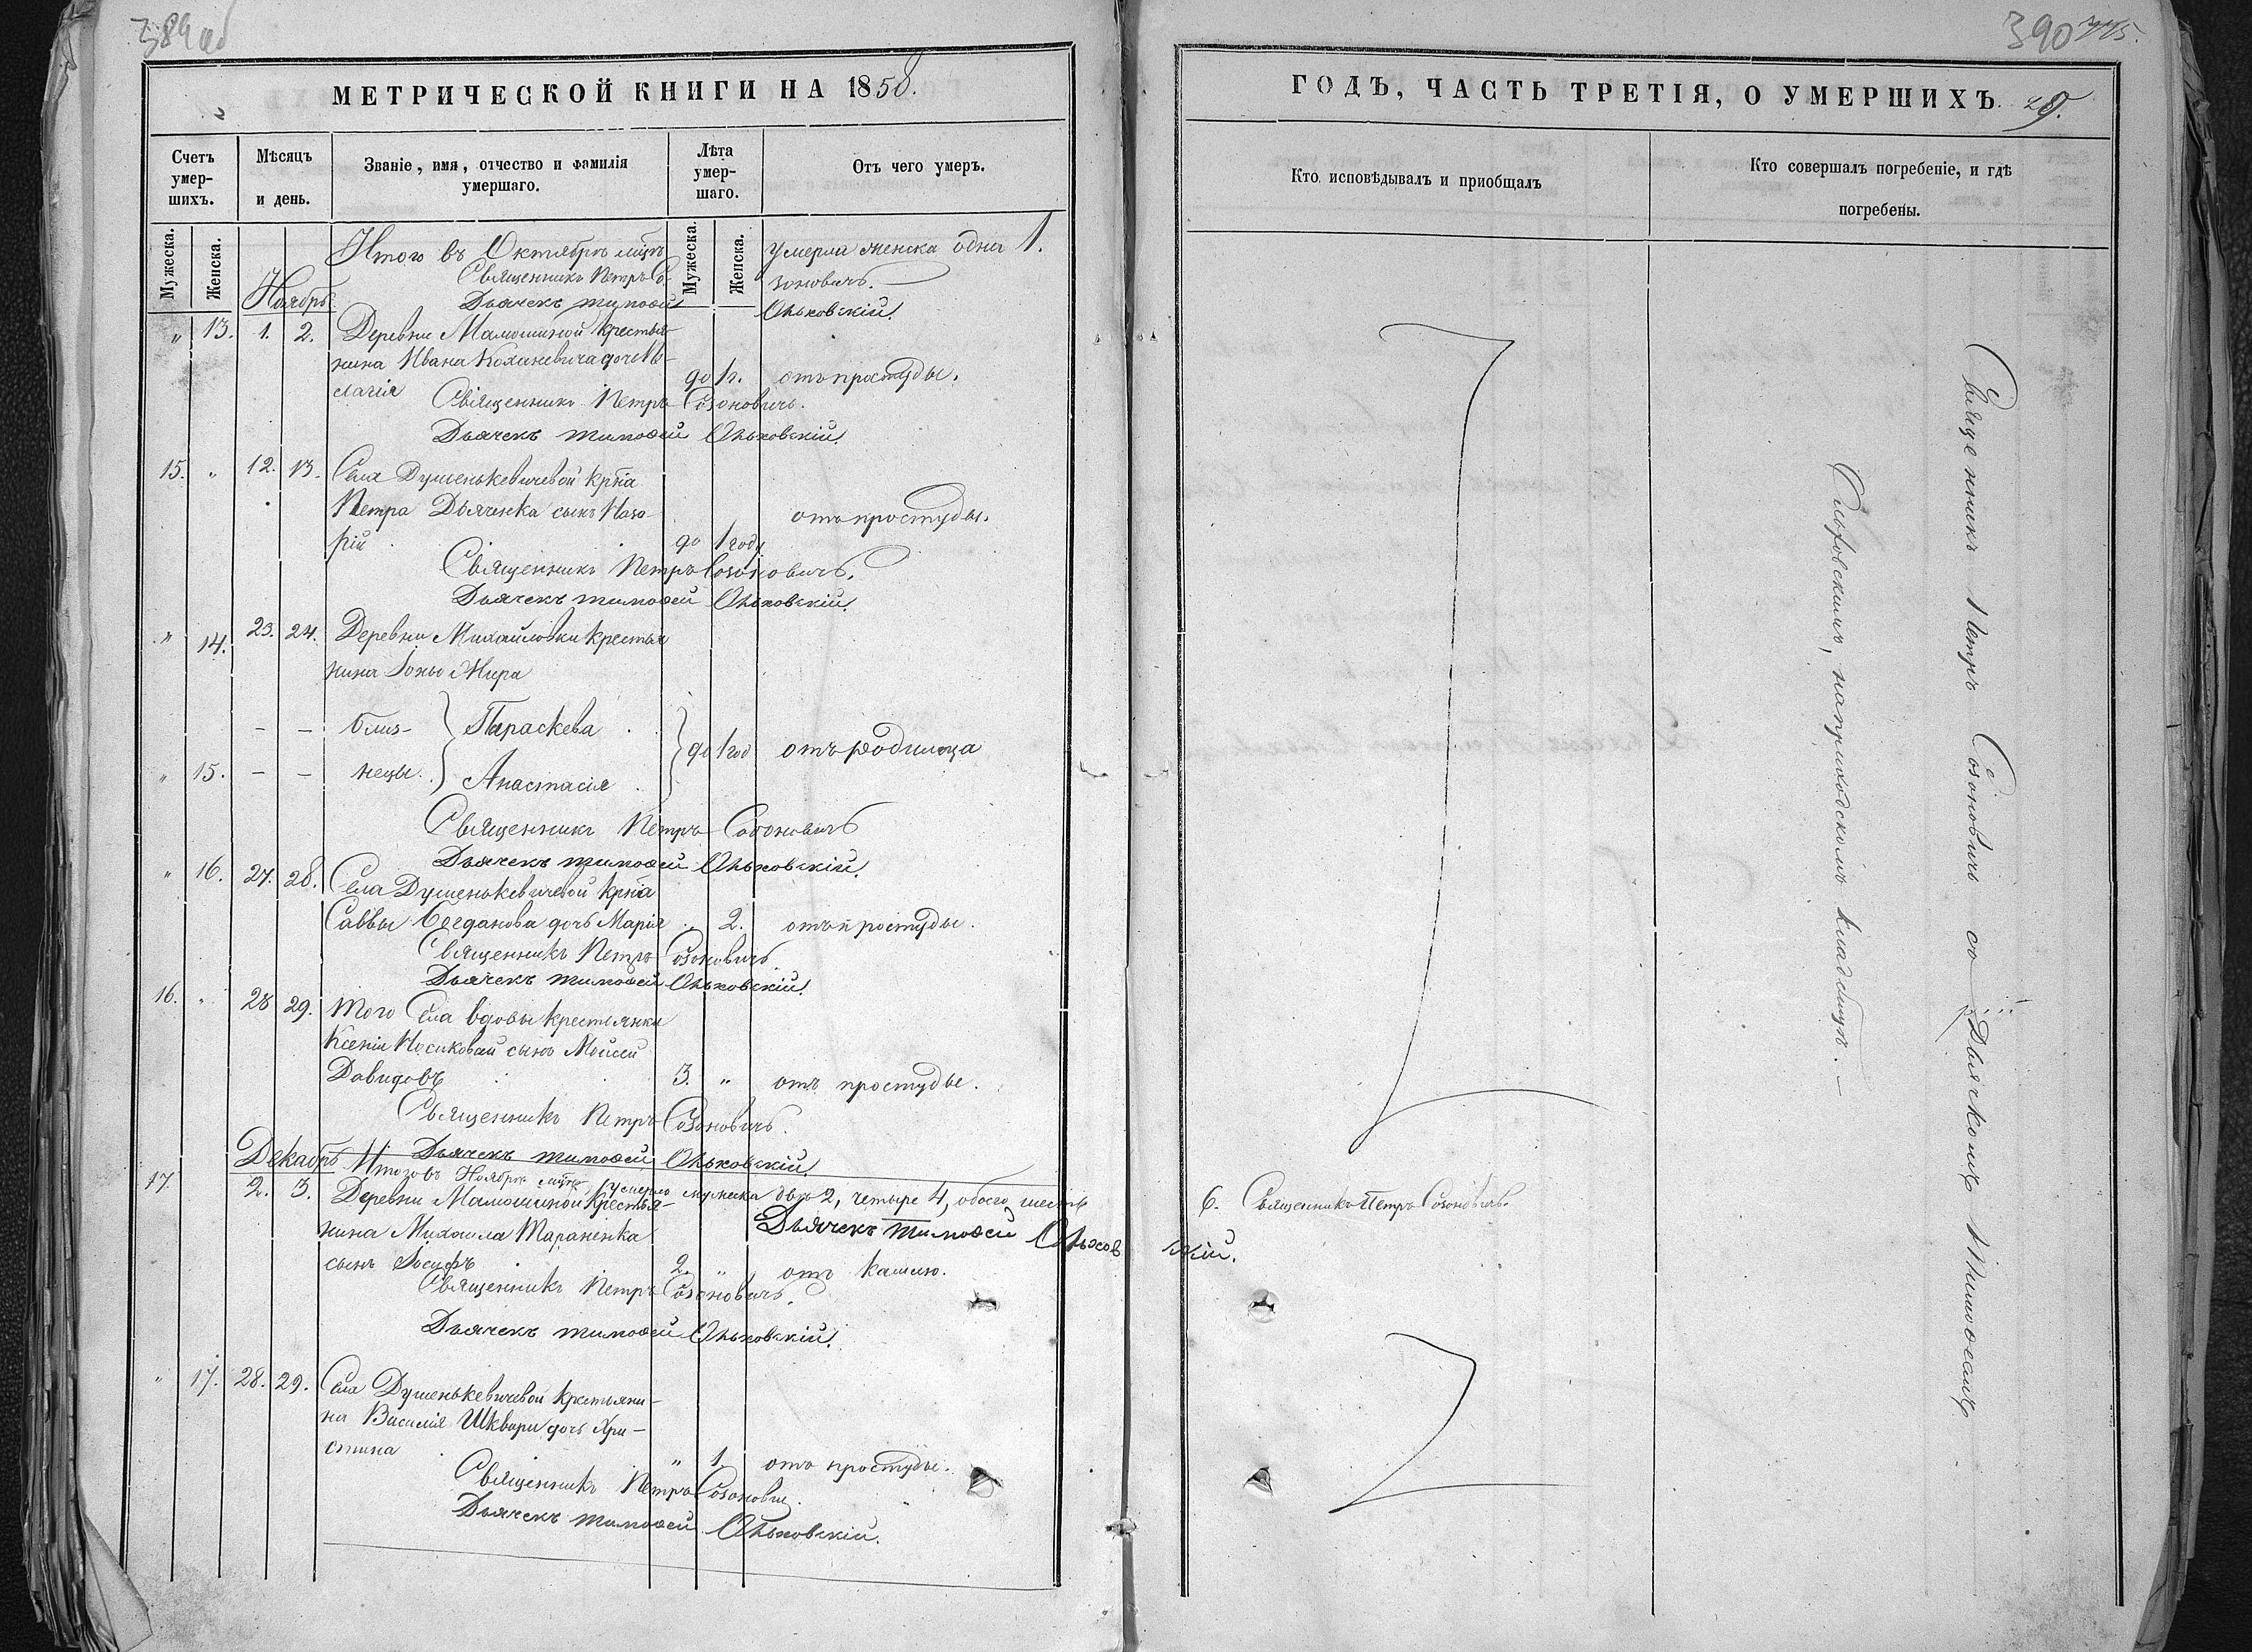 389 об
МЕТРИЧЕСКОЙ КНИГИ НА 1858.
Счетъ умер-шихъ.
Мѣсяцъ и день.
Званіе, имя, отчество и фамилія умершаго.
Лѣта умер-шаго.
Отъ чего умеръ.
Мужеска.
Женска.
Мужеска.
Женска.
Итого въ Октябрѣ мцѣ умерла женска одна 1.
Священникъ Петръ Созоновичъ.
Ноябрь
Дьячекъ Тимоѳей Ольховскій.
" 13. 1. 2. Деревни Мамошиной крестья-
нина Ивана Коханевича дочь
до 1 г. отъ простуды.
Священникъ Петръ Созоновичъ.
Дьячекъ Тимоѳей Ольховскій.
15. " 12. 13. Села Душенькевичевой крнѣа
Петра Дьяченка сынъ Назо-
отъ простуды.
рій до 1 году
Священникъ Петръ Созоновичъ.
Дьячекъ Тимоѳей Ольховскій.
" 14. 23. 24. Деревни Михайловки крестья
нина Іоны Жира
– – близ- Параскева
до 1 год отъ родимца
" 15. – – нецы. Анастасія
Священникъ Петръ Созоновичъ
Дьячекъ Тимоѳей Ольховскій.
" 16. 27. 28. Села Душенькевичевой крнѣа
Саввы Богданова дочь Марія 2. отъ простуды.
Священникъ Петръ Созоновичъ
Дьячекъ Тимоѳей Ольховскій.
16. " 28 29. Того Села вдовы крестьянки
Ксеніи Носиковой сынъ Моисей
Давидовъ 3. " отъ простуды.
Священникъ Петръ Созоновичъ.
Дьячекъ Тимоѳей Ольховскій.
Декабрь
Итого въ Ноябрѣ мцѣ умерло мужеска два 2, четыре 4, обоего шесть
17. 2. 3. Деревни Мамошиной Крестья-
Дьячекъ Тимоѳей Ольхов
нина Михаила Тараненка
сынъ Іосифъ 2. " отъ кашлю.
Священникъ Петръ Созоновичъ.
Дьячекъ Тимоѳей Ольховскій.
" 17. 28. 29. Села Душенькевичевой крестьяни-
на Василія Шквари дочь Хри-
стина " 1. отъ простуды.
Священникъ Петръ Созонови.
Дьячекъ Тимоѳей Ольховскій.
390
ГОДЪ, ЧАСТЬ ТРЕТІЯ, О УМЕРШИХЪ.
Кто исповѣдывалъ и приобщалъ
Кто совершалъ погребеніе, и гдѣ погребены.
6. Священникъ Петръ Созоновичъ.
скій.
Священникъ Петръ Созоновичъ съ Дьячкомъ Тимоѳеемъ
Ольховскимъ, на приходскомъ кладбищѣ.